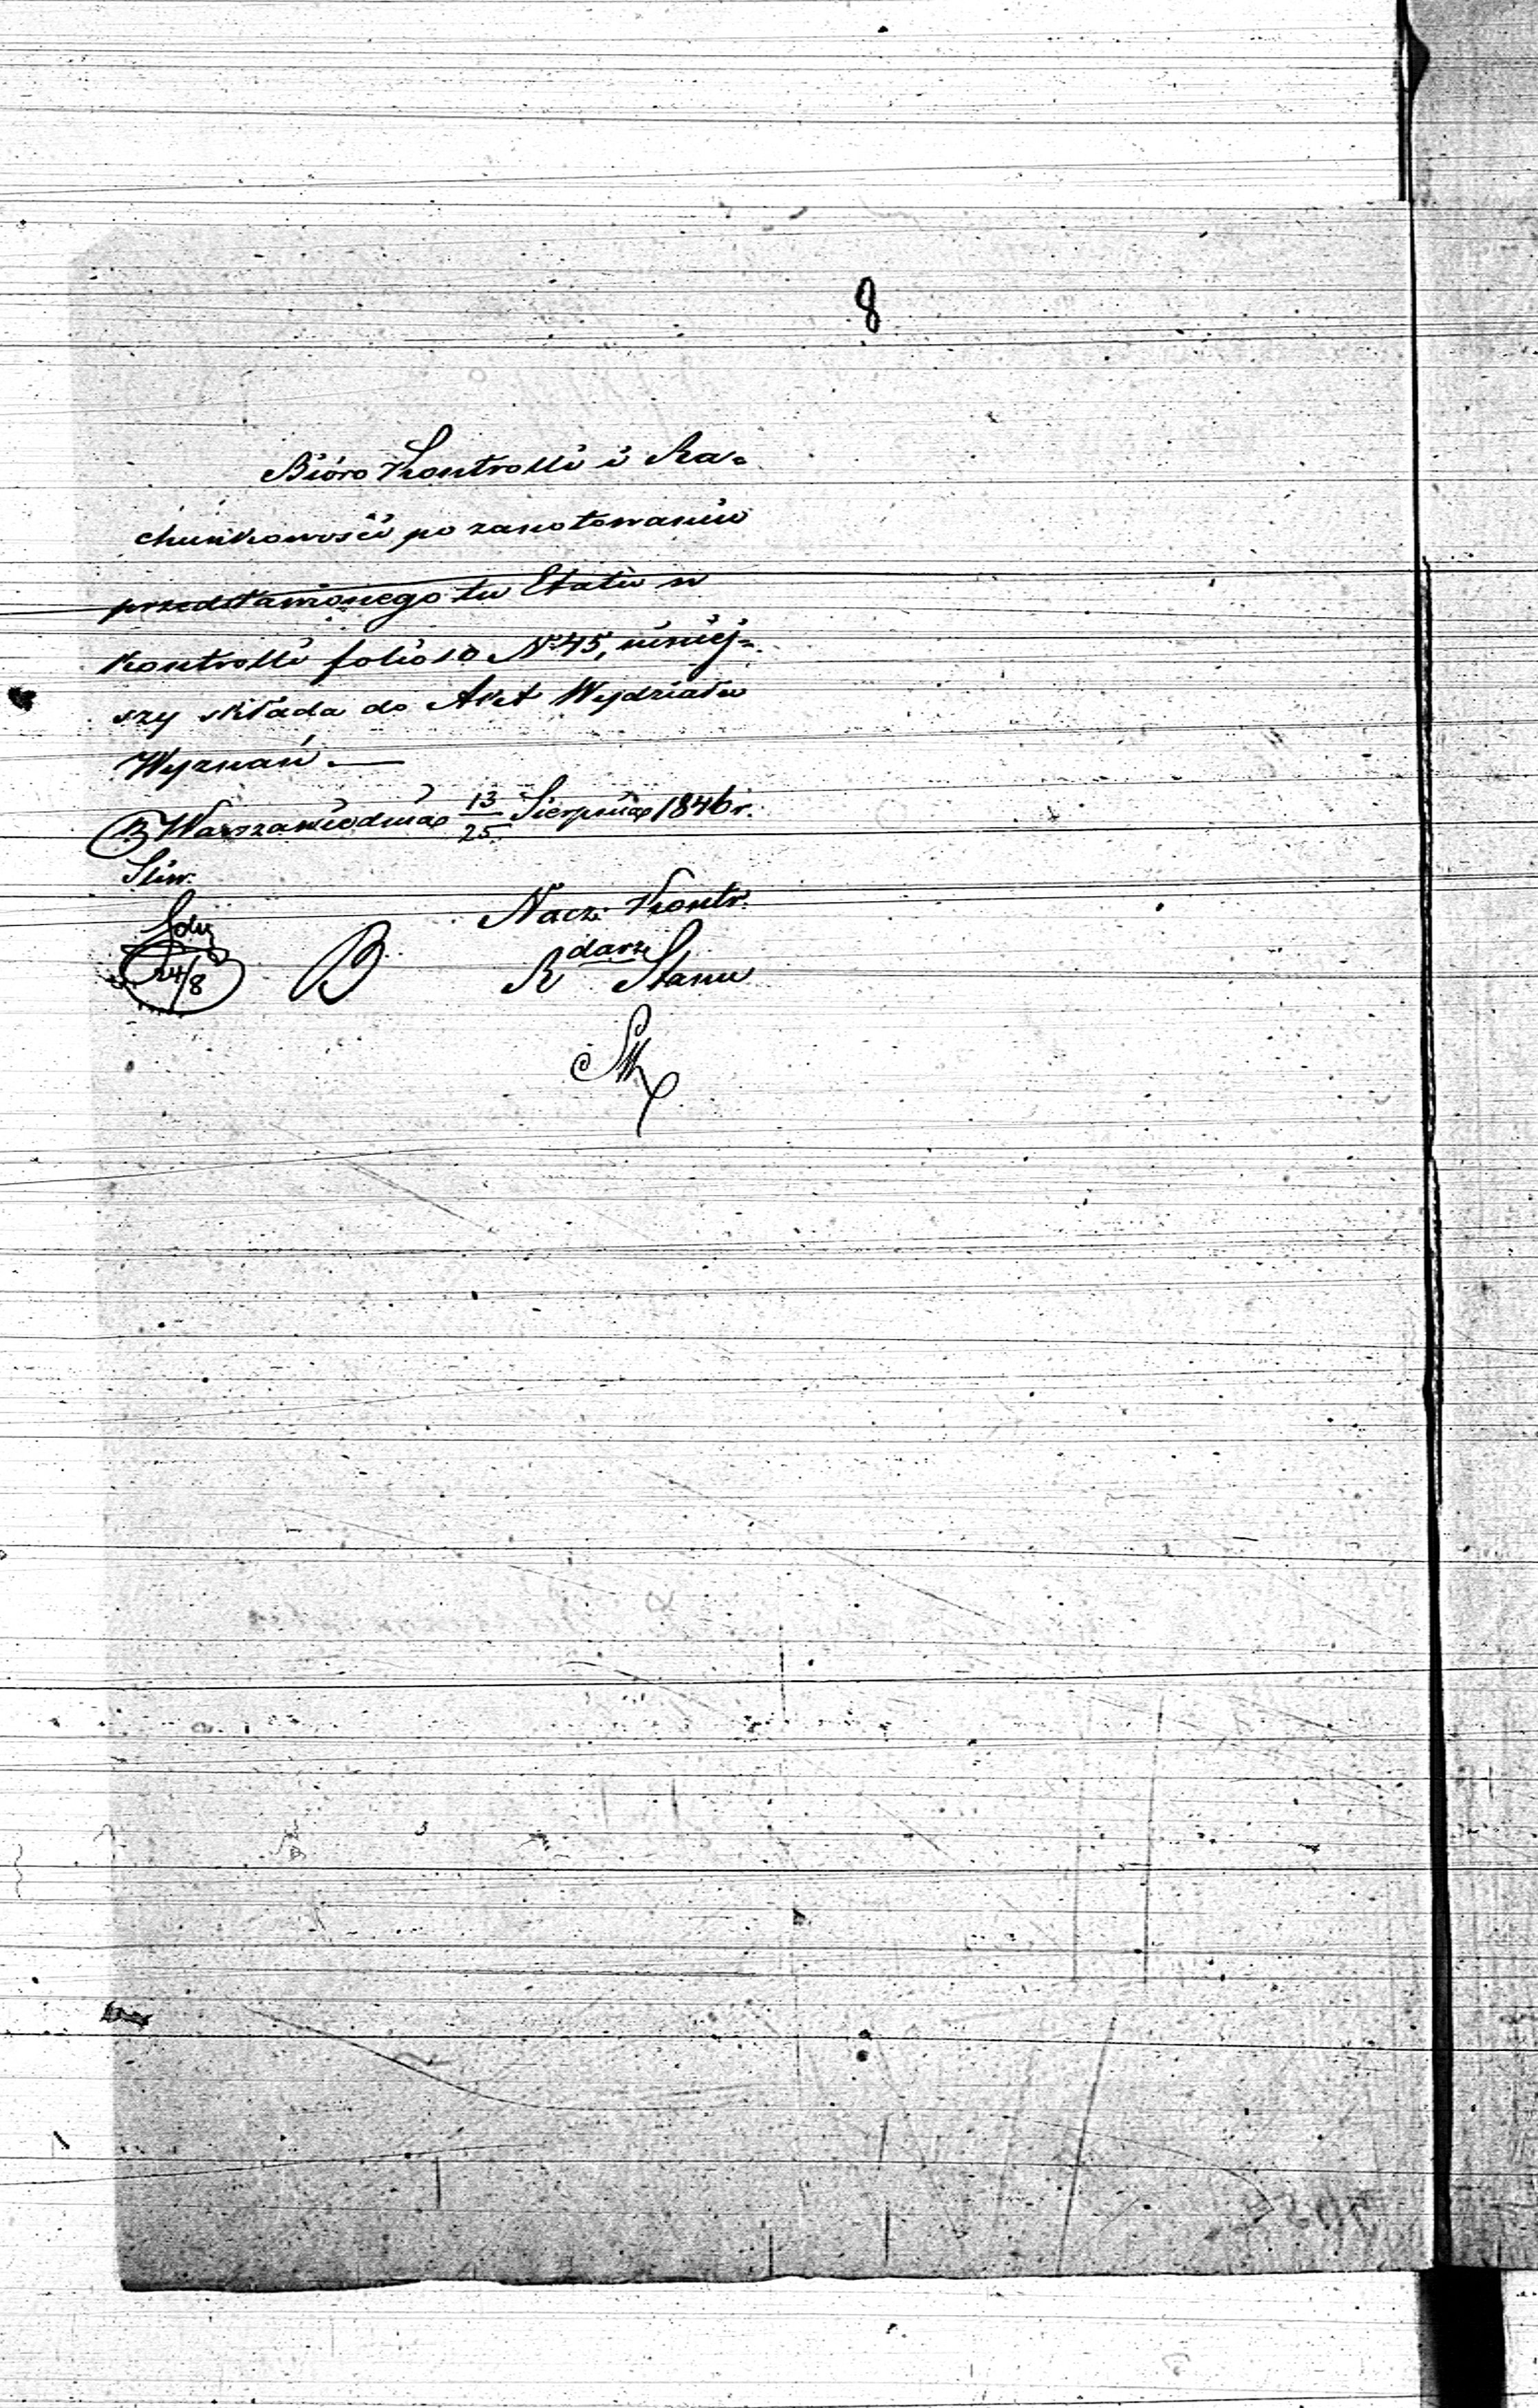 8
Bióro Kontrolli i Ra=
chunkowości po zanotowaniu
przedstawionego tu Etatu w
Kontrolli folio 10 N. 45, niniej=
szy składa do Akt Wydziału
Wyznań. —
w Warszawie dnia 13/25 Sierpnia 1846 r.
Sliw.
24/8
B
Nacz. Kontr.
R darz Stanu